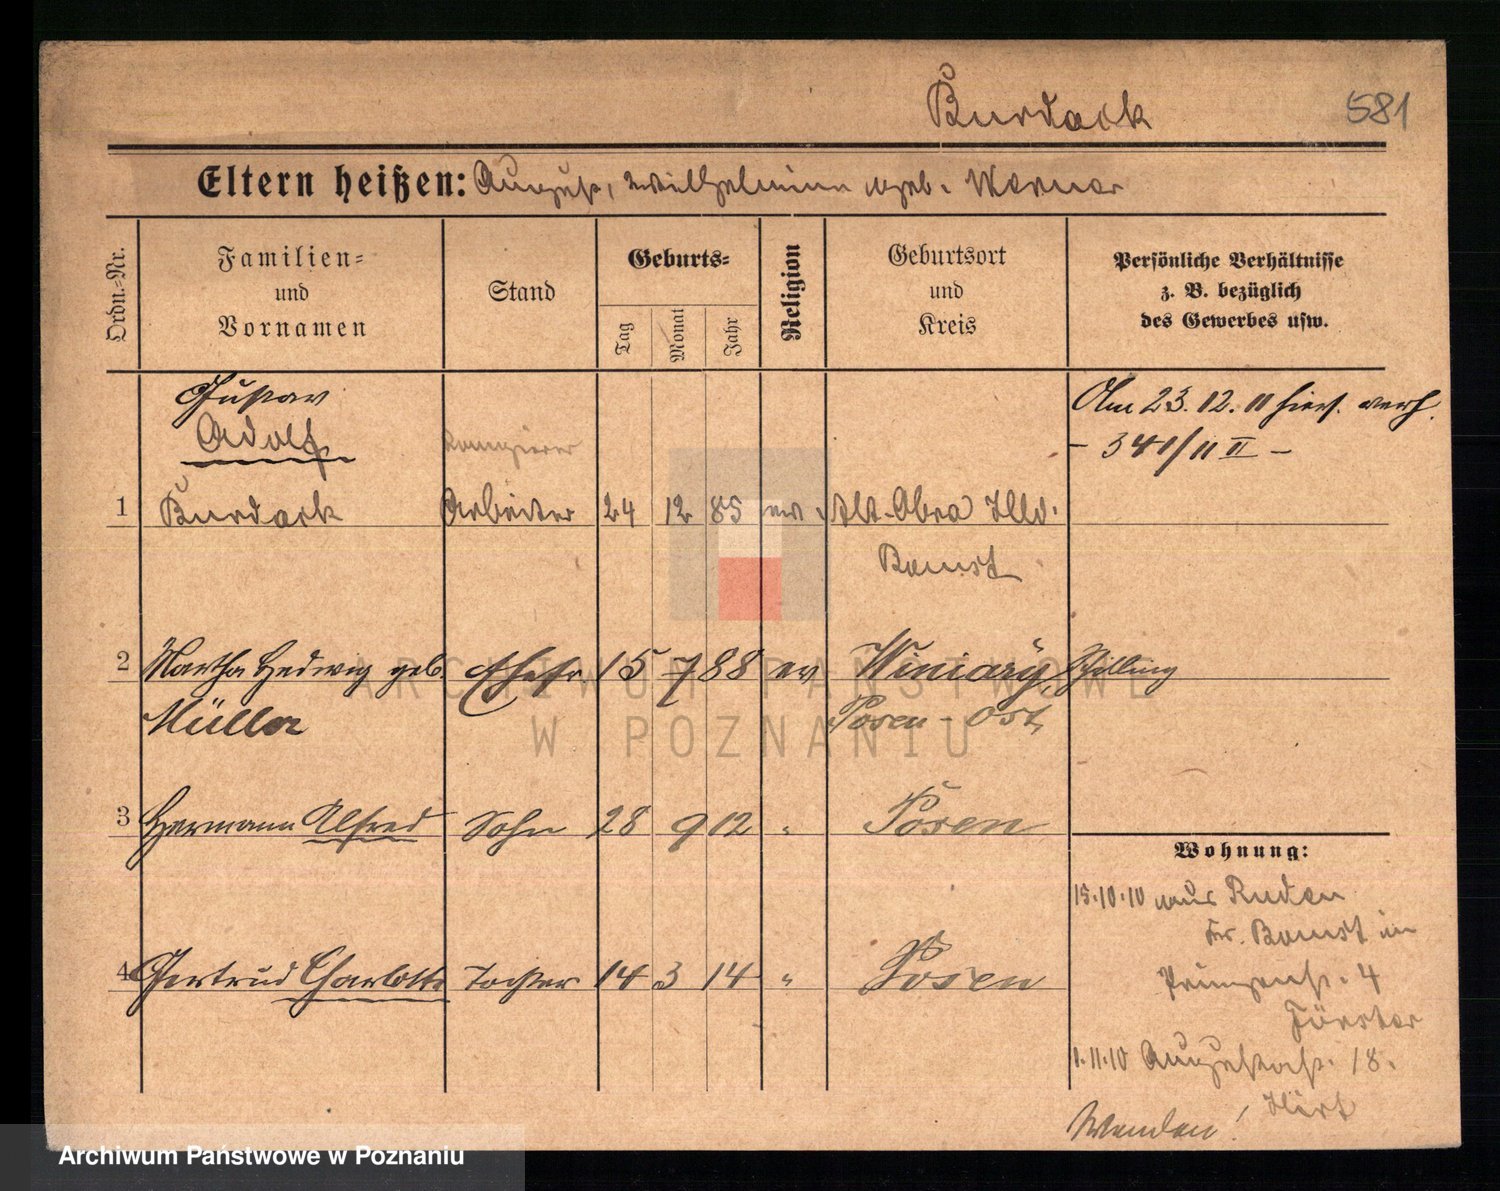 Burdack 581
Eltern heißen: August, Wilhelmine geb. Werner
Ordn.-Nr.
Familien-
und
Vornamen
Stand
Geburts-
Tag
Monat
Jahr
Religion
Geburtsort
und
Kreis
Persönliche Verhältnisse
z. B. bezüglich
des Gewerbes usw.
Gustav
Adolf
1 Burdack Arbeiter 24 12 85 ev. Alt-Obra Hld.
Bomst
Am 23.12.11 hier verh.
- 341/11 II -
2 Martha Hedwig geb. Ehefr 15 7 88 ev Winiary, Schilling
Müller Posen-Ost,
3 Hermann Alfred Sohn 28 9 12 " Posen
4 Gertrud Charlotte Tochter 14 3 14 " Posen
Wohnung:
15.10.10 aus Ruden
Kr. Bomst in
Prinzenstr. 4
Förster
1.11.10 Augustastr. 18.
Hirt
Wenden!
ARCHIWUM PAŃSTWOWE
W POZNANIU
Archiwum Państwowe w Poznaniu